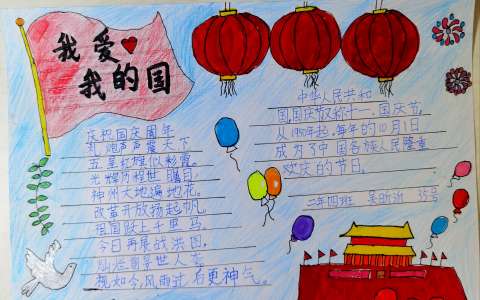 我爱
我的国
庆祝国庆周年
礼炮声声震天下
五星红旗似彩霞。
光辉历程世瞩目
神州大地遍地花。
改革开放扬起帆,
祖国路上千里马
今日再展战洪图,
灿烂前景世人夸
视如今,风雨过,后更神气。
中华人民共和
国国庆节又称十一、国庆节,
从1950年起,每年的10月1日
成为了中国各族人民隆重
欢庆的节日。
二年四班 吴昕 号